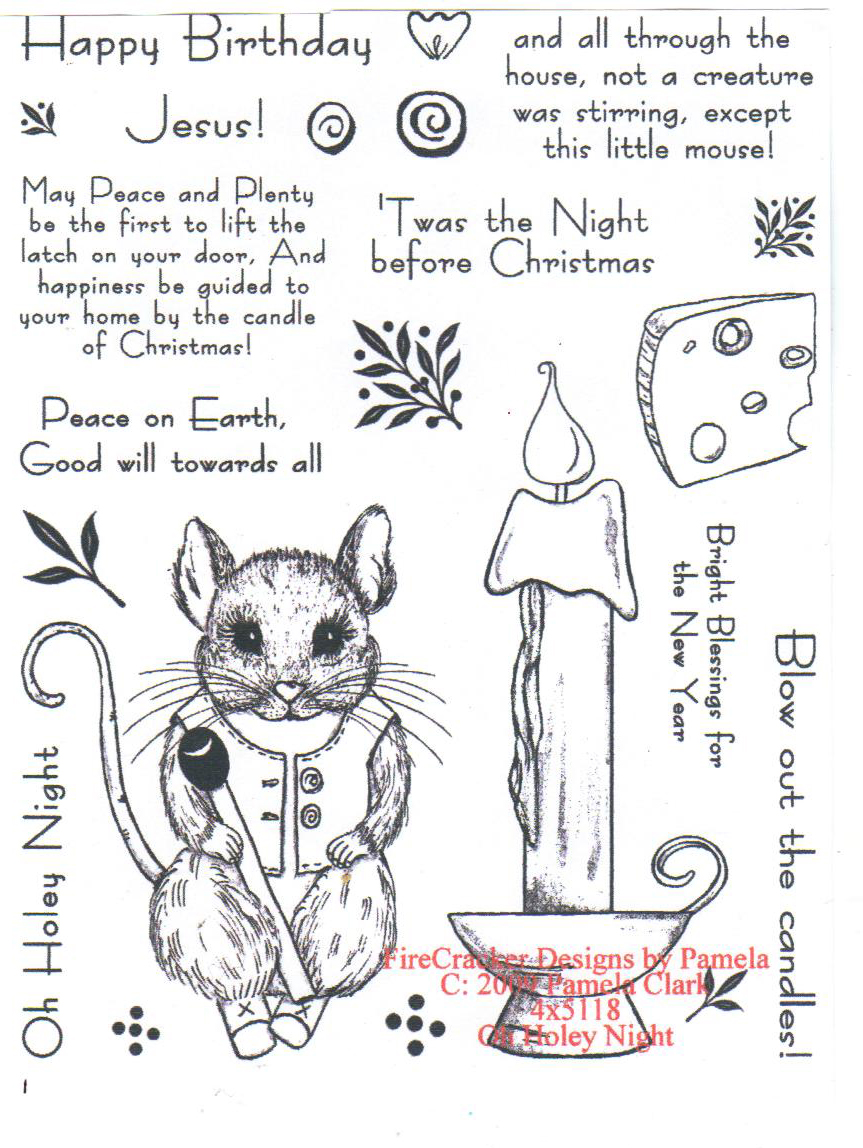 Happy Birthday
Jesus!
and all through the
house, not a creature
was stirring, except
this little mouse!
May Peace and Plenty
be the first to lift the
latch on your door, And
happiness be guided to
your home by the candle
of Christmas!
'Twas the Night
before Christmas
Peace on Earth,
Good will towards all
Bright Blessings for
the New Year
Blow out the candles!
Oh Holey Night
FireCracker Designs by Pamela
C: 2009 Pamela Clark
4x5118
Oh Holey Night